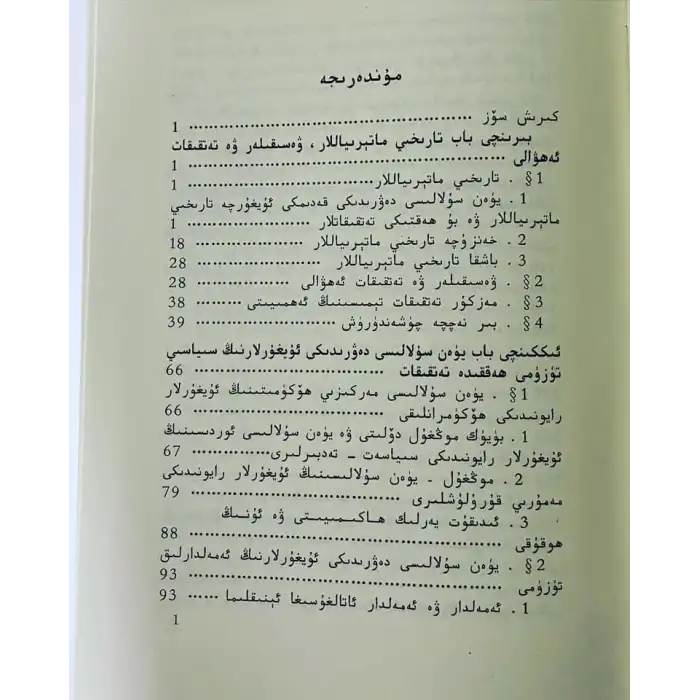 مۇندەرىجە
كىرىش سۆز ................................................ 1
بىرىنچى باب تارىخىي ماتېرىياللار، ۋەسىقىلەر ۋە تەتقىقات
ئەھۋالى ................................................ 1
§1. تارىخىي ماتېرىياللار ................................ 1
1. يۈەن سۇلالىسى دەۋرىدىكى قەدىمكى ئۇيغۇرچە تارىخىي
ماتېرىياللار ۋە بۇ ھەقتىكى تەتقىقاتلار ........................ 1
2. خەنزۇچە تارىخىي ماتېرىياللار ........................ 18
3. باشقا تارىخىي ماتېرىياللار ........................ 28
§2. ۋەسىقىلەر ۋە تەتقىقات ئەھۋالى ........................ 28
§3. مەزكۇر تەتقىقات تېمىسىنىڭ ئەھمىيىتى .......... 38
§4. بىر نەچچە چۈشەندۈرۈش ........................ 39
ئىككىنچى باب يۈەن سۇلالىسى دەۋرىدىكى ئۇيغۇرلارنىڭ سىياسىي
تۈزۈمى ھەققىدە تەتقىقات ................................ 66
§1. يۈەن سۇلالىسى مەركىزىي ھۆكۈمىتىنىڭ ئۇيغۇرلار
رايونىدىكى ھۆكۈمرانلىقى ................................ 66
1. بۈيۈك موڭغۇل دۆلىتى ۋە يۈەن سۇلالىسى ئوردىسىنىڭ
ئۇيغۇرلار رايونىدىكى سىياسەت – تەدبىرلىرى ................ 67
2. موڭغۇل – يۈەن سۇلالىسىنىڭ ئۇيغۇرلار رايونىدىكى
مەمۇرىي قۇرۇلۇشلىرى ................................ 79
3. ئىدىقۇت يەرلىك ھاكىمىيىتى ۋە ئۇنىڭ
ھوقۇقى ................................................ 88
§2. يۈەن سۇلالىسى دەۋرىدىكى ئۇيغۇرلارنىڭ ئەمەلدارلىق
تۈزۈمى ................................................ 93
1. ئەمەلدار ۋە ئەمەلدار ئاتالغۇسىغا ئېنىقلىما ...... 93
1